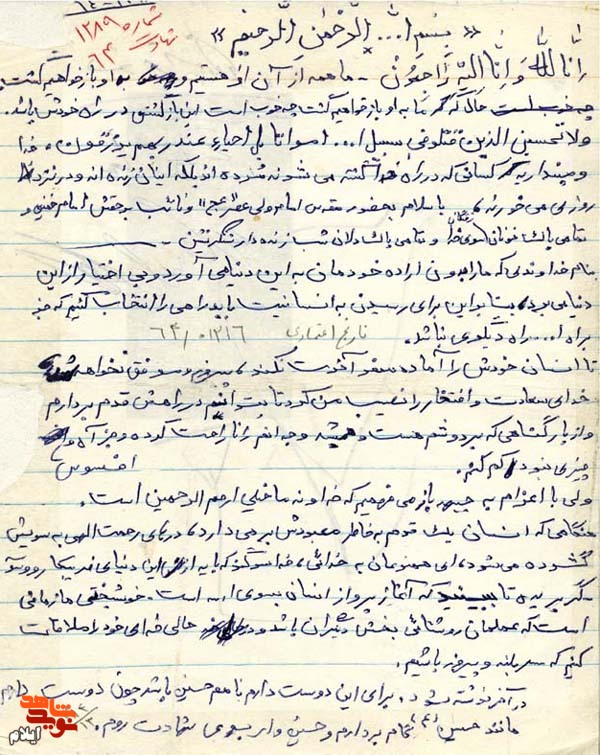 شماره ۱۲۸۹
۶۴
« بسم ا... الرَّحْمٰنِ الرَّحیم »
اِنّا لِلّه وَ اِنّا اِلَیْهِ رٰاجِعُونْ - ما همه از آن او هستیم و به او باز خواهیم گشت
چه خوب است حال که گر ما به او باز خواهیم گشت چه خوب است این بازگشتی در راه خودش باشد.
ولا تحسبن الذین قتلو فی سبیل ا... امواتا بل احیاء عند ربهم یرزقون، خدا
و مپندارید کسانی که در راه خدا کشته می شوند مرده اند بلکه اینان زنده اند و در نزد خدا
روزی می خورند، با سلام بحضور مقدس امام ولی عصر "عج" و نائب برحقش امام خمینی و
تمامی پاک خونان خدا و تمامی پاک دلان شب زنده دار سنگرنشین -
بنام خداوندی که ما را بدون اراده خودمان به این دنیا می آورد و بی اختیار از این
دنیا می برد، بنابراین برای رسیدن به انسانیت باید راهی را انتخاب کنیم که جز
براه ا... راه دیگری نباشد. تاریخ اعزامی ۶۴/۰۱۲/۶
تا انسان خودش را آماده سفر آخرت نکند، پیروز و موفق نخواهد شد
خدای سعادت و افتخار را نصیب من کرد تا بتوانم در راهش قدم بردارم
و از بار گناهی که بر دوشم هست و همیشه وجدانم را ناراحت کرده و جز آه و
افسوس
چیزی نبود، کم کنم.
ولی با اعزام به جبهه باز می فهمیم که خداوند ما خیلی ارحم الرحمین است.
هنگامی که انسان یک قدم به خاطر معبودش برمی دارد، درهای رحمت الهی به سویش
گشوده می شود، ای همنوعان به خدائی، خدا سوگند که باید از این دنیای فریبکار رو به سو
گیریده تا ببینید که آغاز پرواز انسان بسوی ا... است. خوشبختی ما زمانی
است که عملمان روشنائی بخش دیگران باشد و در حالی خدای خود را ملاقات
کنیم که سربلند و پیروز باشیم.
در آخر نوشته شود. برای این دوست دارم با هم حسین باشد چون دوست دارم
مانند حسین "ع" قدم بردارم و حسین وار بسوی شهادت روم.
نوید شاهد
ایلام